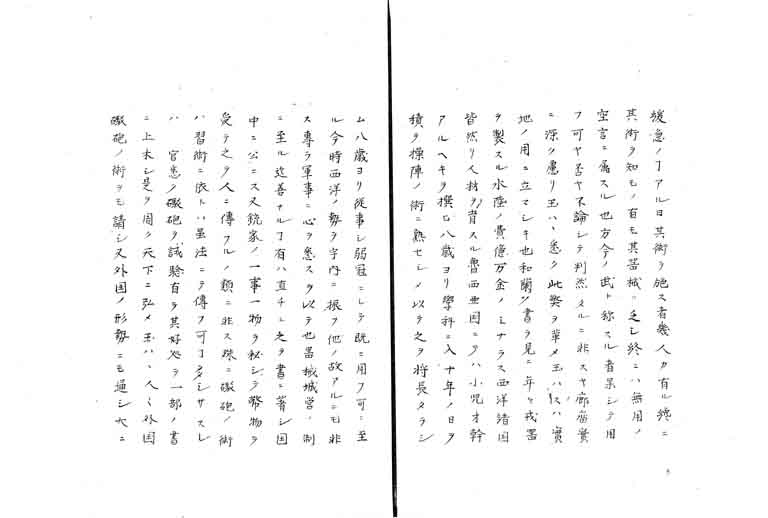 緩急ノ丁アル日其術ヲ施ス者幾人カ有ル縦ニ
其術ヲ知モノ有モ其器械ニ乏シ終ニハ無用ノ
空言ニ属スル也方今ノ武ト称スル者果シテ用
フ可ヤ否ヤ不論シテ判然タルニ非スヤ廊廟實
ニ深ク慮リ玉ハヽ悉ク此弊ヲ革メ玉ハスハ實
地ノ用ニ立マシキ也和蘭ノ書ヲ見ニ年々戎器
ヲ製スル水陸ノ費億万金ノミナラス西洋諸国
皆然リ人材ヲ育スル魯西亜国ニテハ小児才幹
アルヘキヲ撰ヒ八歳ヨリ學科ニ入十年ノ日ヲ
積テ操陣ノ術ニ熟セシメ以テ之ヲ将長タラシ
ム八歳ヨリ從事シ弱冠ニシテ既ニ用フ可ニ至
ル今時西洋ノ勢ヲ宇内ニ振フ他ノ故アルニモ非
ス專ラ軍事ニ心ヲ悉スヲ以テ也器械城営ノ制
ニ至ル迄善ナル丁有ハ直チニ之ヲ書ニ著シ国
中ニ公ニス又銃家ノ一事一物ヲ秘シテ幣物ヲ
受テ之ヲ人ニ傳フルノ類ニ非ス殊ニ礟砲ノ術
ハ習術ニ依トハ虽法ニテ傳フ可丁多シサスレ
ハ 官悉ク礟砲ヲ試驗有テ其好処ヲ一部ノ書
ニ上木シ是ヲ周ク天下ニ弘メ玉ハヽ人々外国
礟砲ノ術ヲモ講シ又外国ノ形勢ニモ通シ大ニ